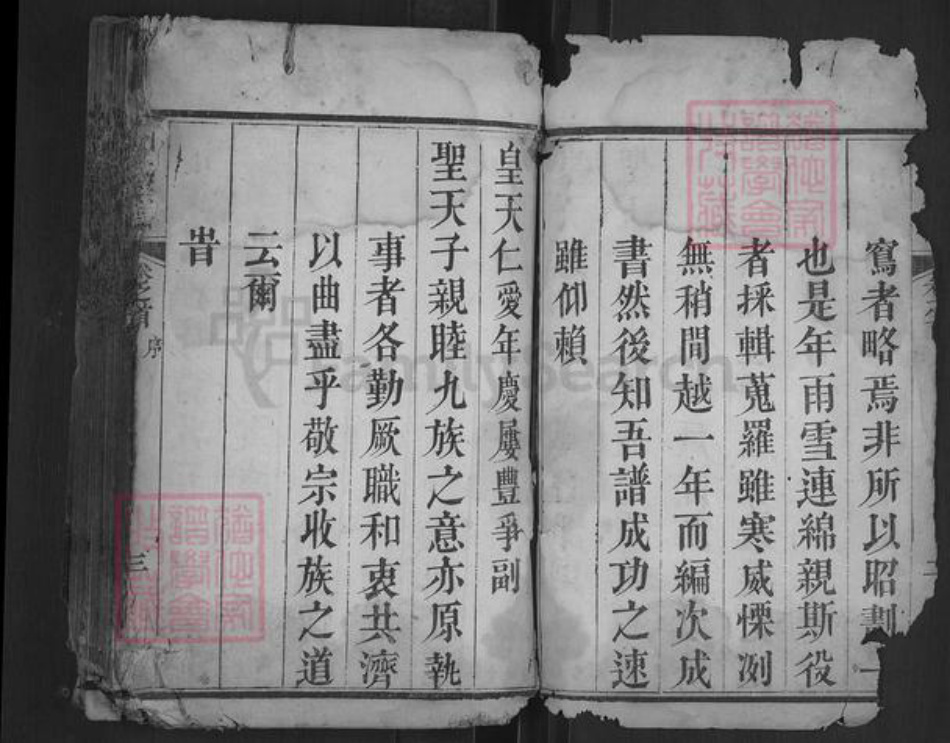 寫者略焉非所以昭劃一
也是年雨雪連綿親斯役
者採輯蒐羅雖寒威慄冽
無稍間越一年而編次成
書然後知吾譜成功之速
雖仰賴
皇天仁愛年慶屢豐爭副
聖天子親睦九族之意亦原執
事者各勤厥職和衷共濟
以曲盡乎敬宗收族之道
云爾
旹
序
三
FamilySearch